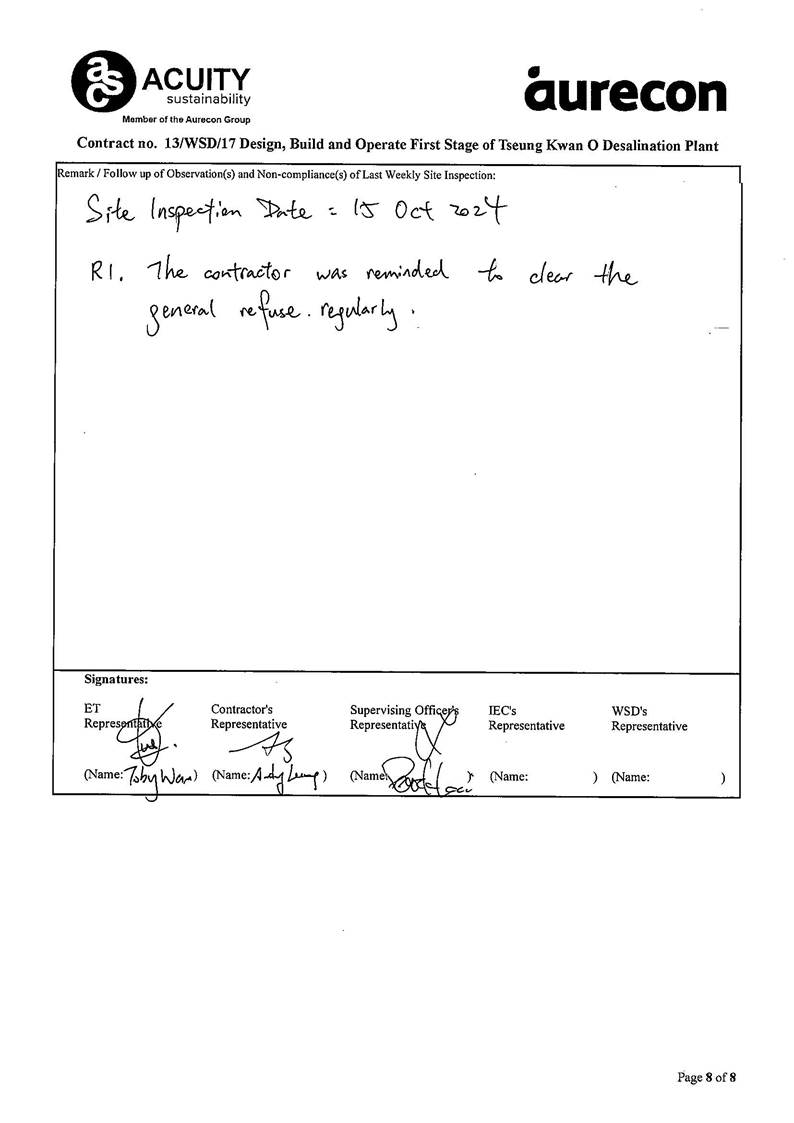 asc ACUITY
sustainability
Member of the Aurecon Group
aurecon
Contract no. 13/WSD/17 Design, Build and Operate First Stage of Tseung Kwan O Desalination Plant
Remark / Follow up of Observation(s) and Non-compliance(s) of Last Weekly Site Inspection:
Site Inspection Date = 15 Oct 2024
R1. The contractor was reminded to clear the
general refuse. regularly.
Signatures:
ET Contractor's Supervising Officer's IEC's WSD's
Representative Representative Representative Representative Representative
(Name: Toby Wan) (Name: Andy Leung) (Name: ) (Name: ) (Name: )
Page 8 of 8